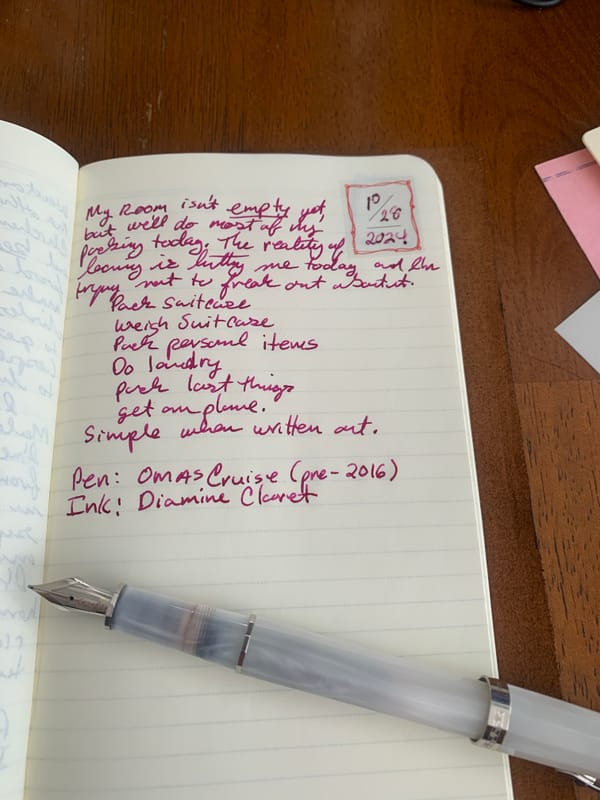 My Room isn't empty yet,
but we'll do most of my
packing today. The reality of
leaving is hitting me today and I'm
trying not to freak out about it.
Pack suitcase
weigh Suitcase
Pack personal items
Do laundry
pack last things
get on plane.
Simple when written out.
Pen: OMAS Cruise (pre-2016)
Ink: Diamine Claret
10/28
2024